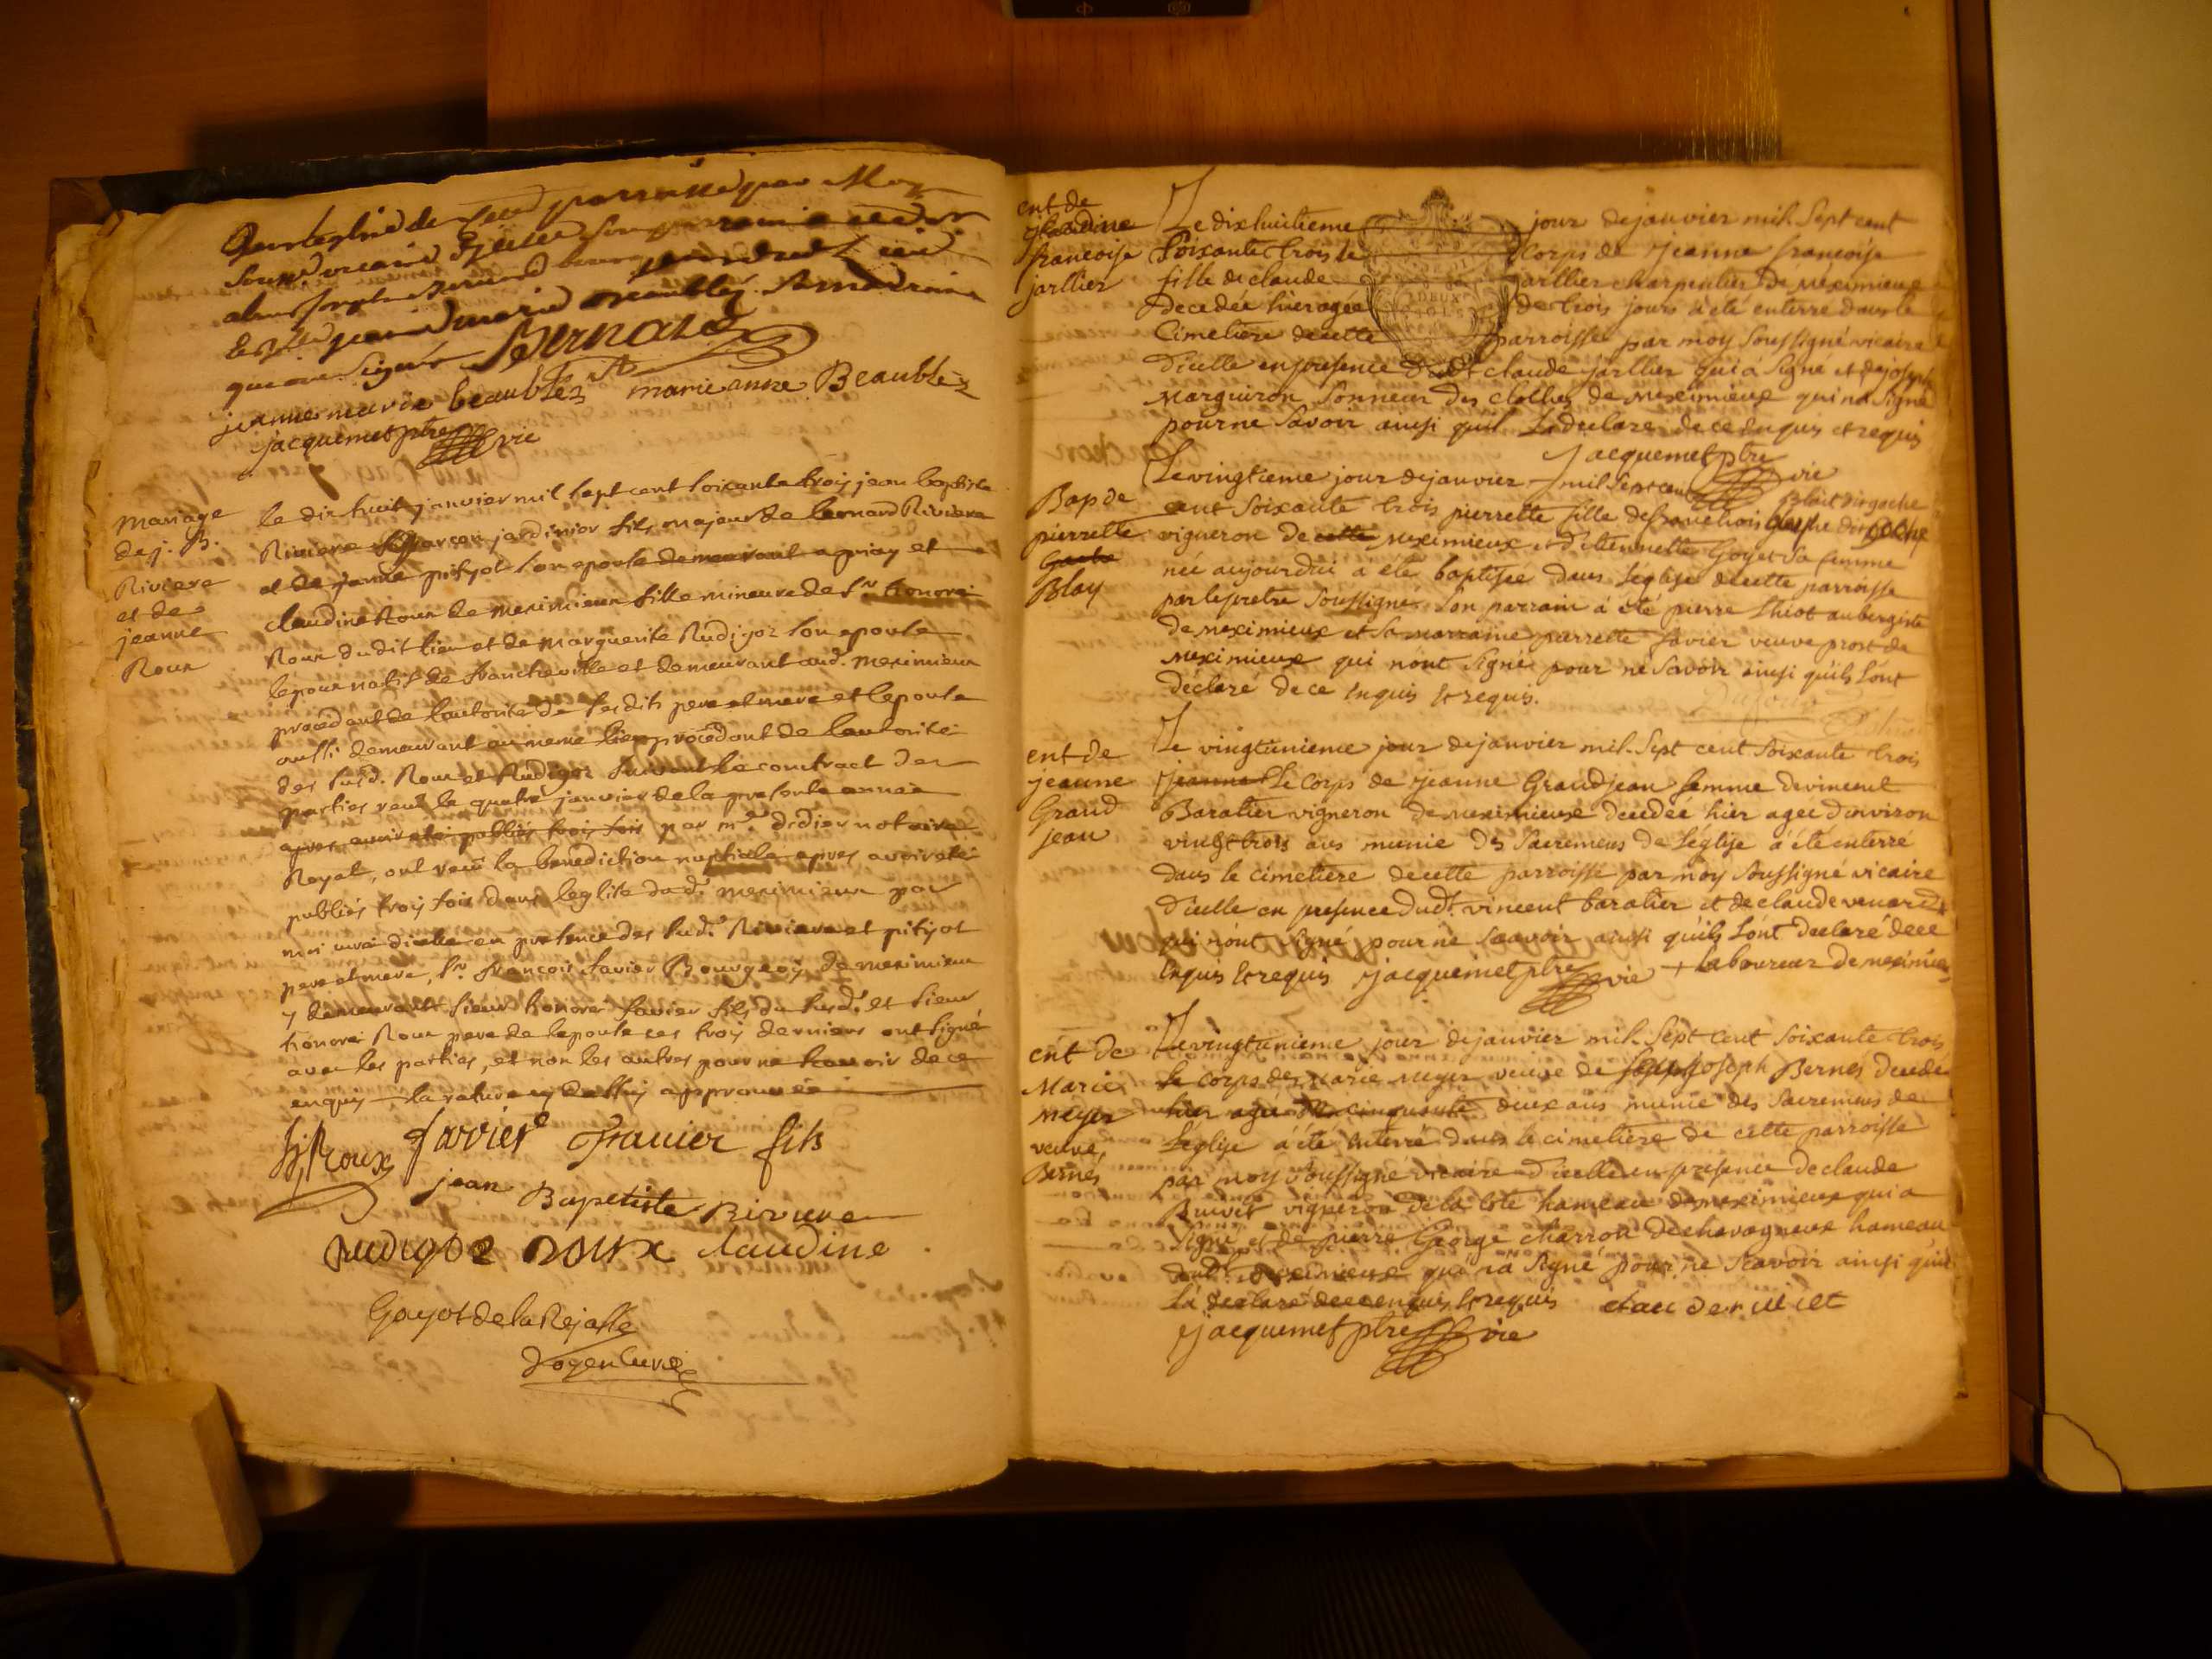 dans leglise de cette parroisse par Moy
Soussigné vicaire
jeanne marie beaublez
que ont signé Bernard
jeanne marie beaublez marie anne Beaublez
jacquemet ptre vic
mariage
de j. B.
Riviere
et de
jeanne
Roux
le dix huit janvier mil sept cent soixante trois jean baptiste
Riviere garcon jardinier fils majeur de leonard Riviere
et de jeanne pityot son epouse demeurant a priay et
claudine Roux de meximieux fille mineure de sr honoré
Roux dudit lieu et de marguerite Rudigoz son epouse
lepoux natif de francheville et demeurant aud. meximieux
procedant de lautorité de sesdits pere et mere et lepouse
aussi demeurant au meme lieu procedant de lautorité
des susd. Roux et Rudigoz suivant le contract des
parties receu le quatre janvier de la presente année
apres avoir eté publiés trois fois par me didier notaire
Royal, ont receu la benediction nuptiale apres avoir eté
publiés trois fois dans leglise dud. meximieux par
moi curé dicelle en presence des sud. Riviere et pityot
pere et mere, sr françois favier Bourgeois de meximieux
y demeurant sieur honoré favier fils du susd. et sieur
honoré Roux pere de lepouse ces trois derniers ont signé
avec les parties, et non les autres pour ne scavoir de ce
enquis la rature cy dessus approuvée
hj Roux favier favier fils
jean Baptiste Riviere
Rudigoz roux claudine
Goyot de la Rejasse
doyen curé
ent de
jeanne
francoise
jarllier
Le dix huitieme jour de janvier mil sept cent
soixante trois le corps de jeanne françoise
fille de claude jarllier charpentier de meximieux
decedée hier agée de trois jours a été enterré dans le
cimetiere de cette parroisse par moy soussigné vicaire
d'icelle en presence dudt claude jarllier qui a signé et de joseph
Marguiron sonneur des cloches de meximieux qui n'a signé
pour ne savoir ainsi qu'il l'a declaré de ce enquis et requis
jacquemet ptre vic
Bap de
pierrette
Blay
Le vingtieme jour de janvier mil sept cent
cent soixante trois pierrette fille de francois
vigneron de cette meximieux et d'etiennette Goyet sa femme
née aujourdui a été baptisée dans l'église de cette parroisse
par le pretre soussigné. son parrain a été pierre Thiot aubergiste
de meximieux et sa marraine pierrette favier veuve prost de
meximieux qui n'ont signé pour ne savoir ainsi qu'ils l'ont
declaré de ce enquis et requis.
ent de
jeanne
Grand
jean
Le vingtunieme jour de janvier mil sept cent soixante trois
jeanne le corps de jeanne Grandjean femme de vincent
Baratier vigneron de meximieux decedée hier agée d'environ
vingt trois ans munie des sacremens de l'église a été enterré
dans le cimetiere de cette parroisse par moy soussigné vicaire
d'icelle en presence dudt. vincent baratier et de claude venard +
qui n'ont signé pour ne scavoir ainsi qu'ils l'ont declaré de ce
enquis et requis jacquemet ptre vic + laboureur de meximieux
ent de
Marie
meyer
veuve
Bernés
Le vingtunieme jour de janvier mil sept cent soixante trois
le corps de marie meyer veuve de joseph Bernés decedée
hier agée de cinquante deux ans munie des sacremens de
l'église a été enterré dans le cimetiere de cette parroisse
par moy soussigné vicaire d'icelle en presence de claude
Ruivet vigneron de la cote hameau de meximieux qui a
signé et de pierre George charron de chavagneux hameau
dudt. meximieux qui n'a signé pour ne scavoir ainsi qu'il
l'a declaré de ce enquis et requis claude ruivet
jacquemet ptre vic